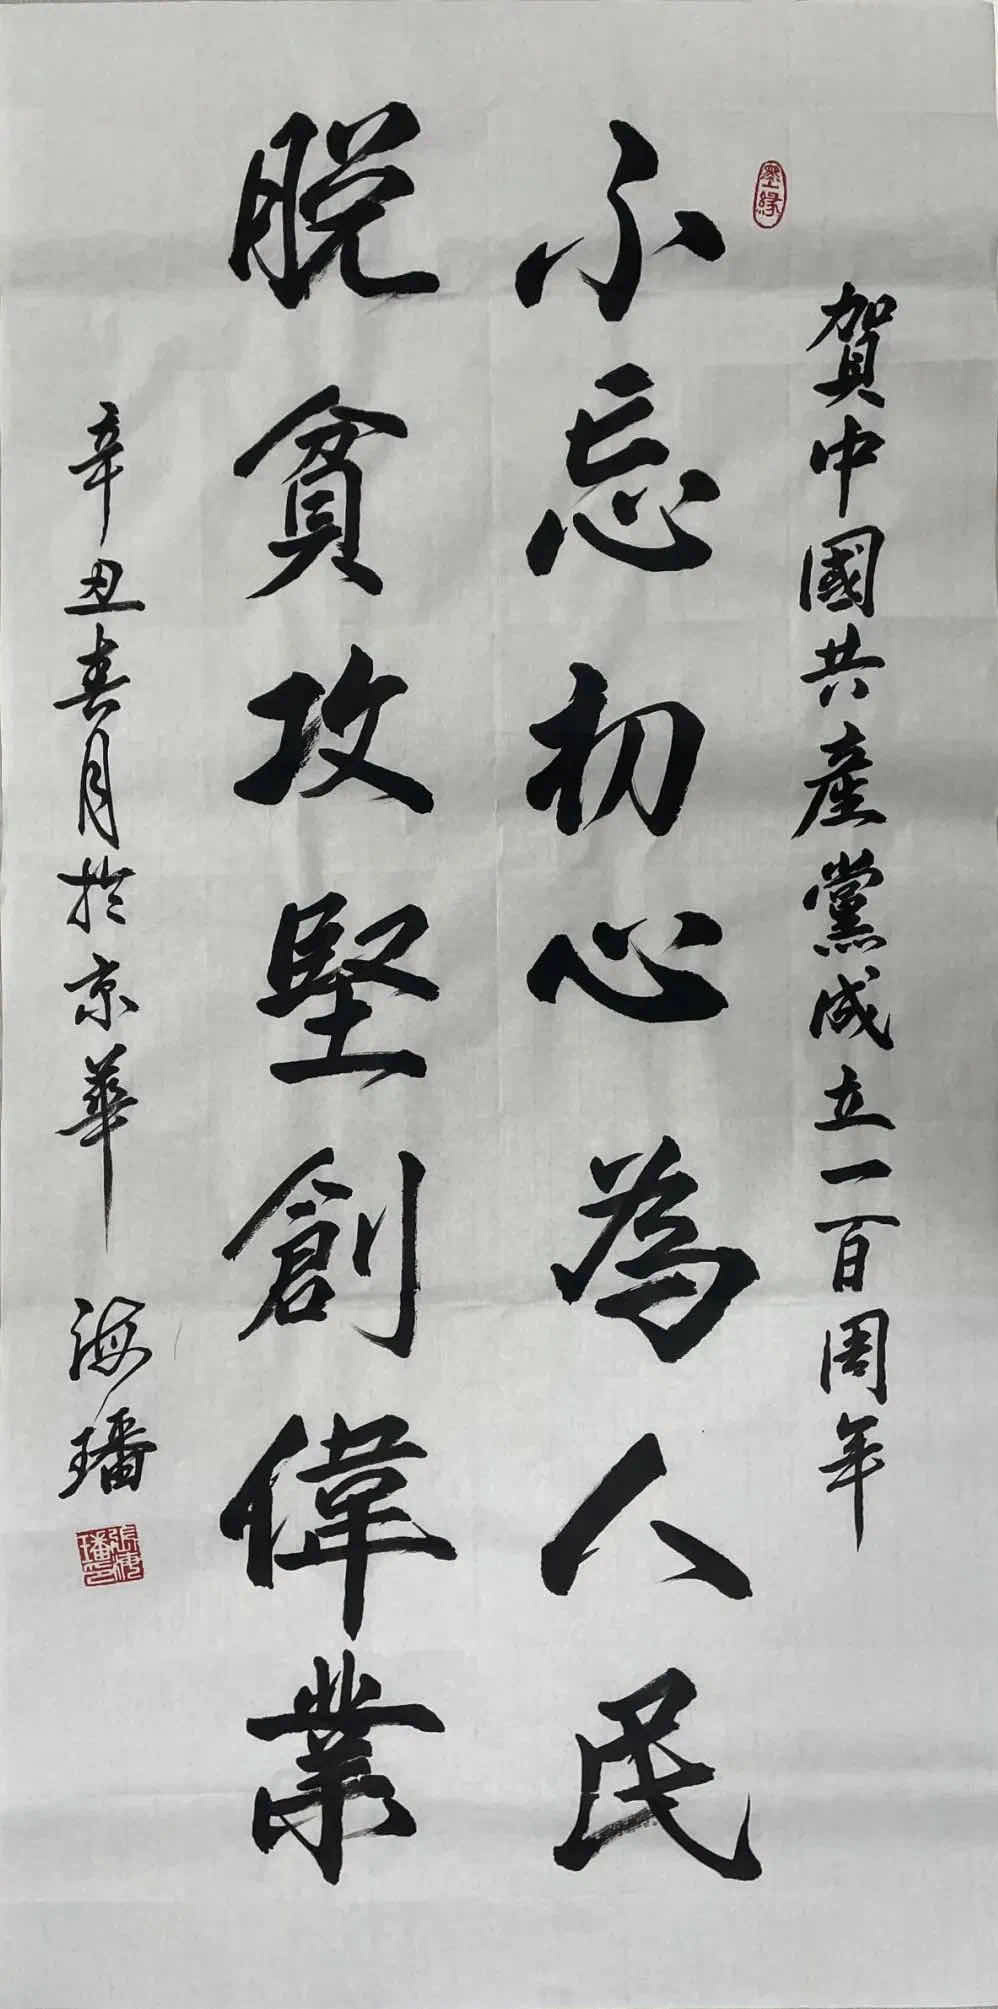 墨缘
賀中國共產黨成立一百周年
不忘初心為人民
脱貧攻堅創偉業
辛丑春月於京華
海璠
張海璠印